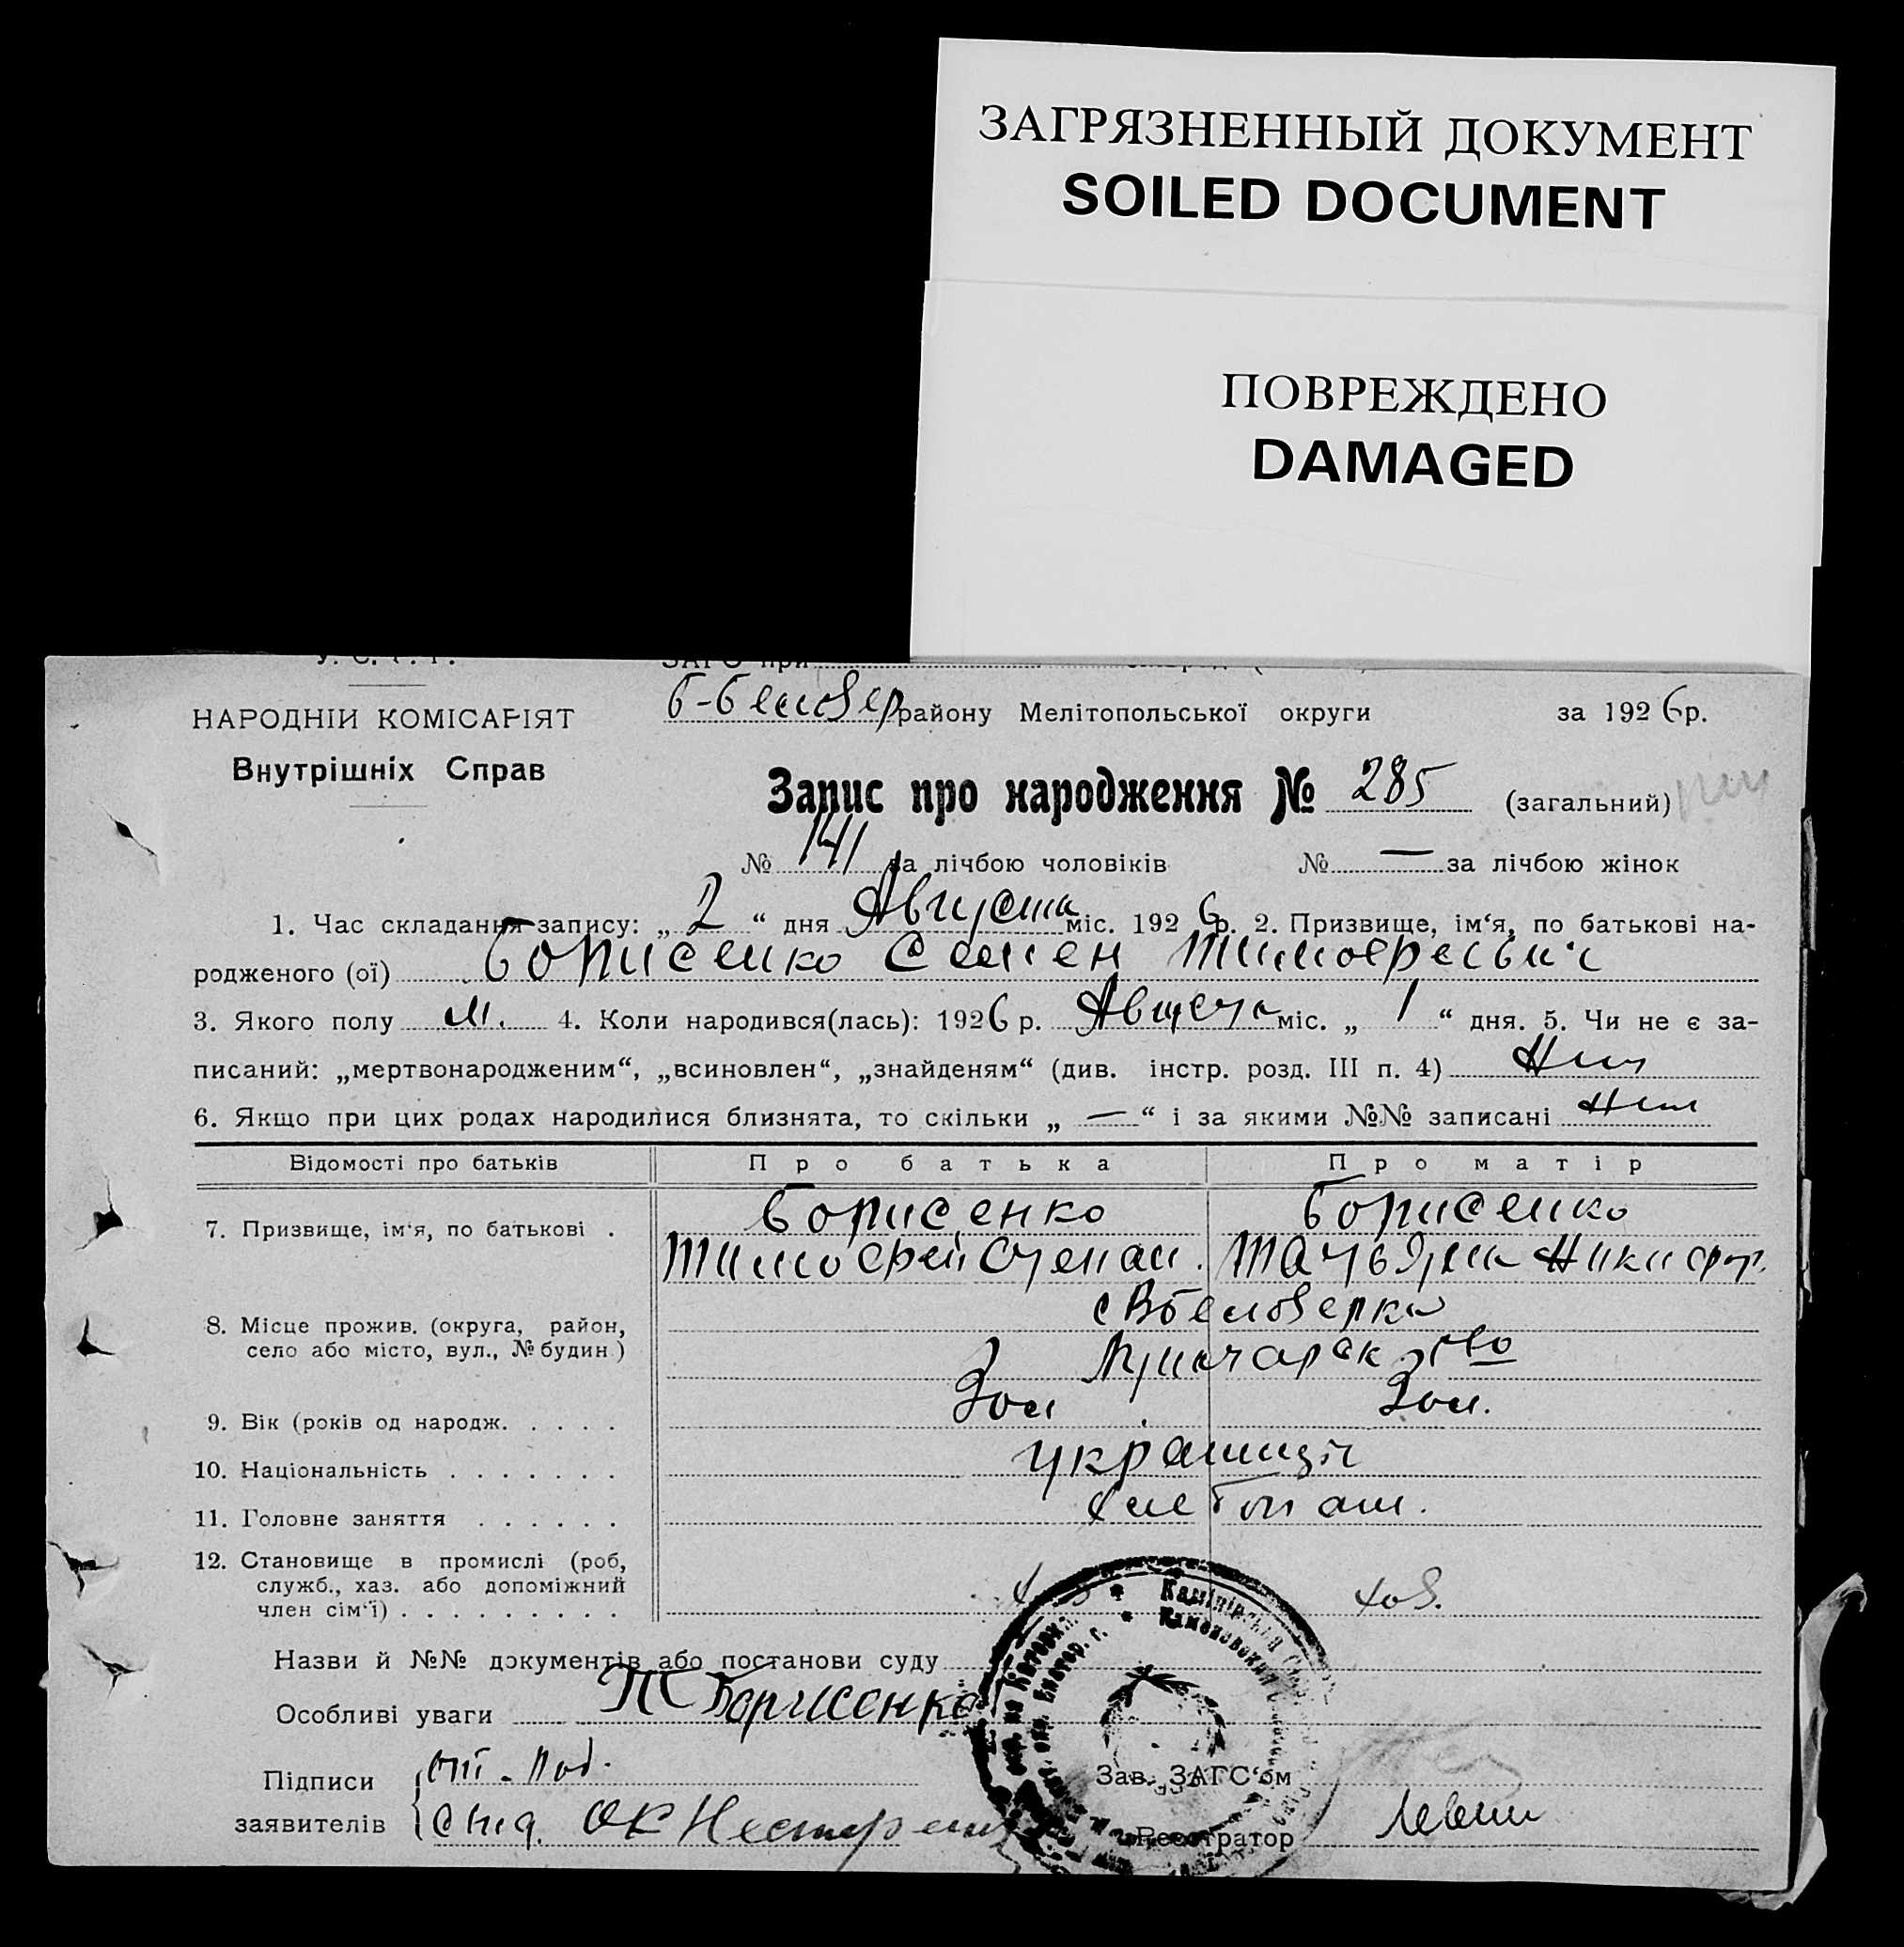 ЗАГРЯЗНЕННЫЙ ДОКУМЕНТ
SOILED DOCUMENT
ПОВРЕЖДЕНО
DAMAGED
У. С. Р. Р.
ЗАГС при
НАРОДНІЙ КОМІСАРІЯТ
Б-Белозер району Мелітопольської округи за 1926 р.
Внутрішніх Справ
Запис про народження № 285 (загальний)
№ 141 за лічбою чоловіків № — за лічбою жінок
1. Час складання запису: „ 2 “ дня Августа міс. 1926 р. 2. Призвище, ім‘я, по батькові на-
родженого (ої) Борисенко Семен Тимофеевич
3. Якого полу М. 4. Коли народився(лась): 1926 р. Августа міс. „ 1 “ дня. 5. Чи не є за-
писаний: „мертвонародженим“, „всиновлен“, „знайденям“ (див. інстр. розд. III п. 4) Нит
6. Якщо при цих родах народилися близнята, то скільки „ — “ і за якими №№ записані Нит
Відомості про батьків Про батька Про матір
7. Призвище, ім‘я, по батькові . Борисенко Борисенко
Тимофей Степан. Татьяна Никифор.
8. Місце прожив. (округа, район,
село або місто, вул., № будин.)
9. Вік (років од народж. . . . .
10. Національність . . . . . . .
11. Головне заняття . . . . . .
12. Становище в промислі (роб,
служб., хаз. або допоміжний
член сім‘ї) . . . . . . . . . хоз.
Назви й №№ документів або постанови суду
Особливі уваги Т Борисенко
Підписи
заявителів
Зав. ЗАГС‘ом
Реєстратор